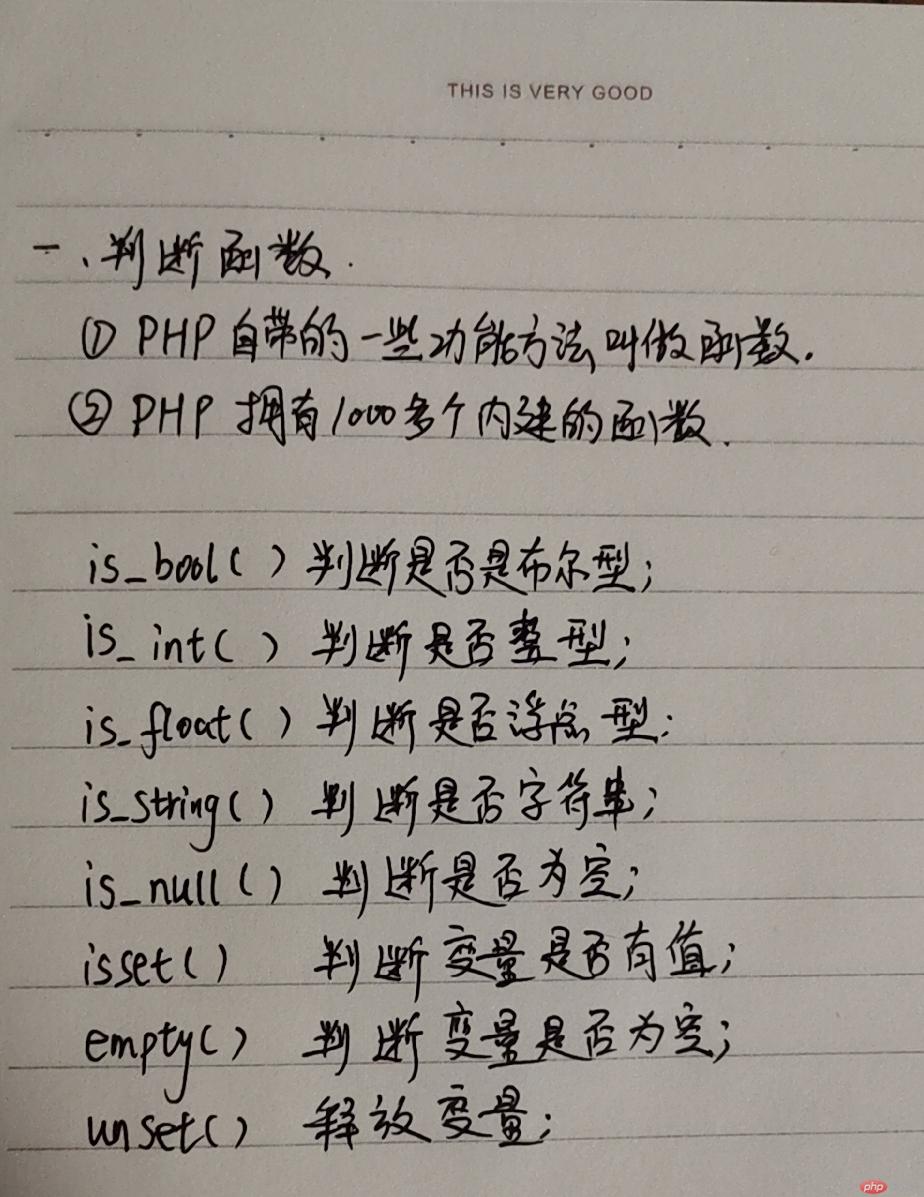 THIS IS VERY GOOD
一、判断函数.
① PHP 自带的一些功能方法叫做函数.
② PHP 拥有1000多个内建的函数.
is_bool( ) 判断是否是布尔型;
is_int( ) 判断是否整型;
is_float( ) 判断是否浮点型;
is_string( ) 判断是否字符串;
is_null( ) 判断是否为空;
isset( ) 判断变量是否有值;
empty( ) 判断变量是否为空;
unset( ) 释放变量;
php